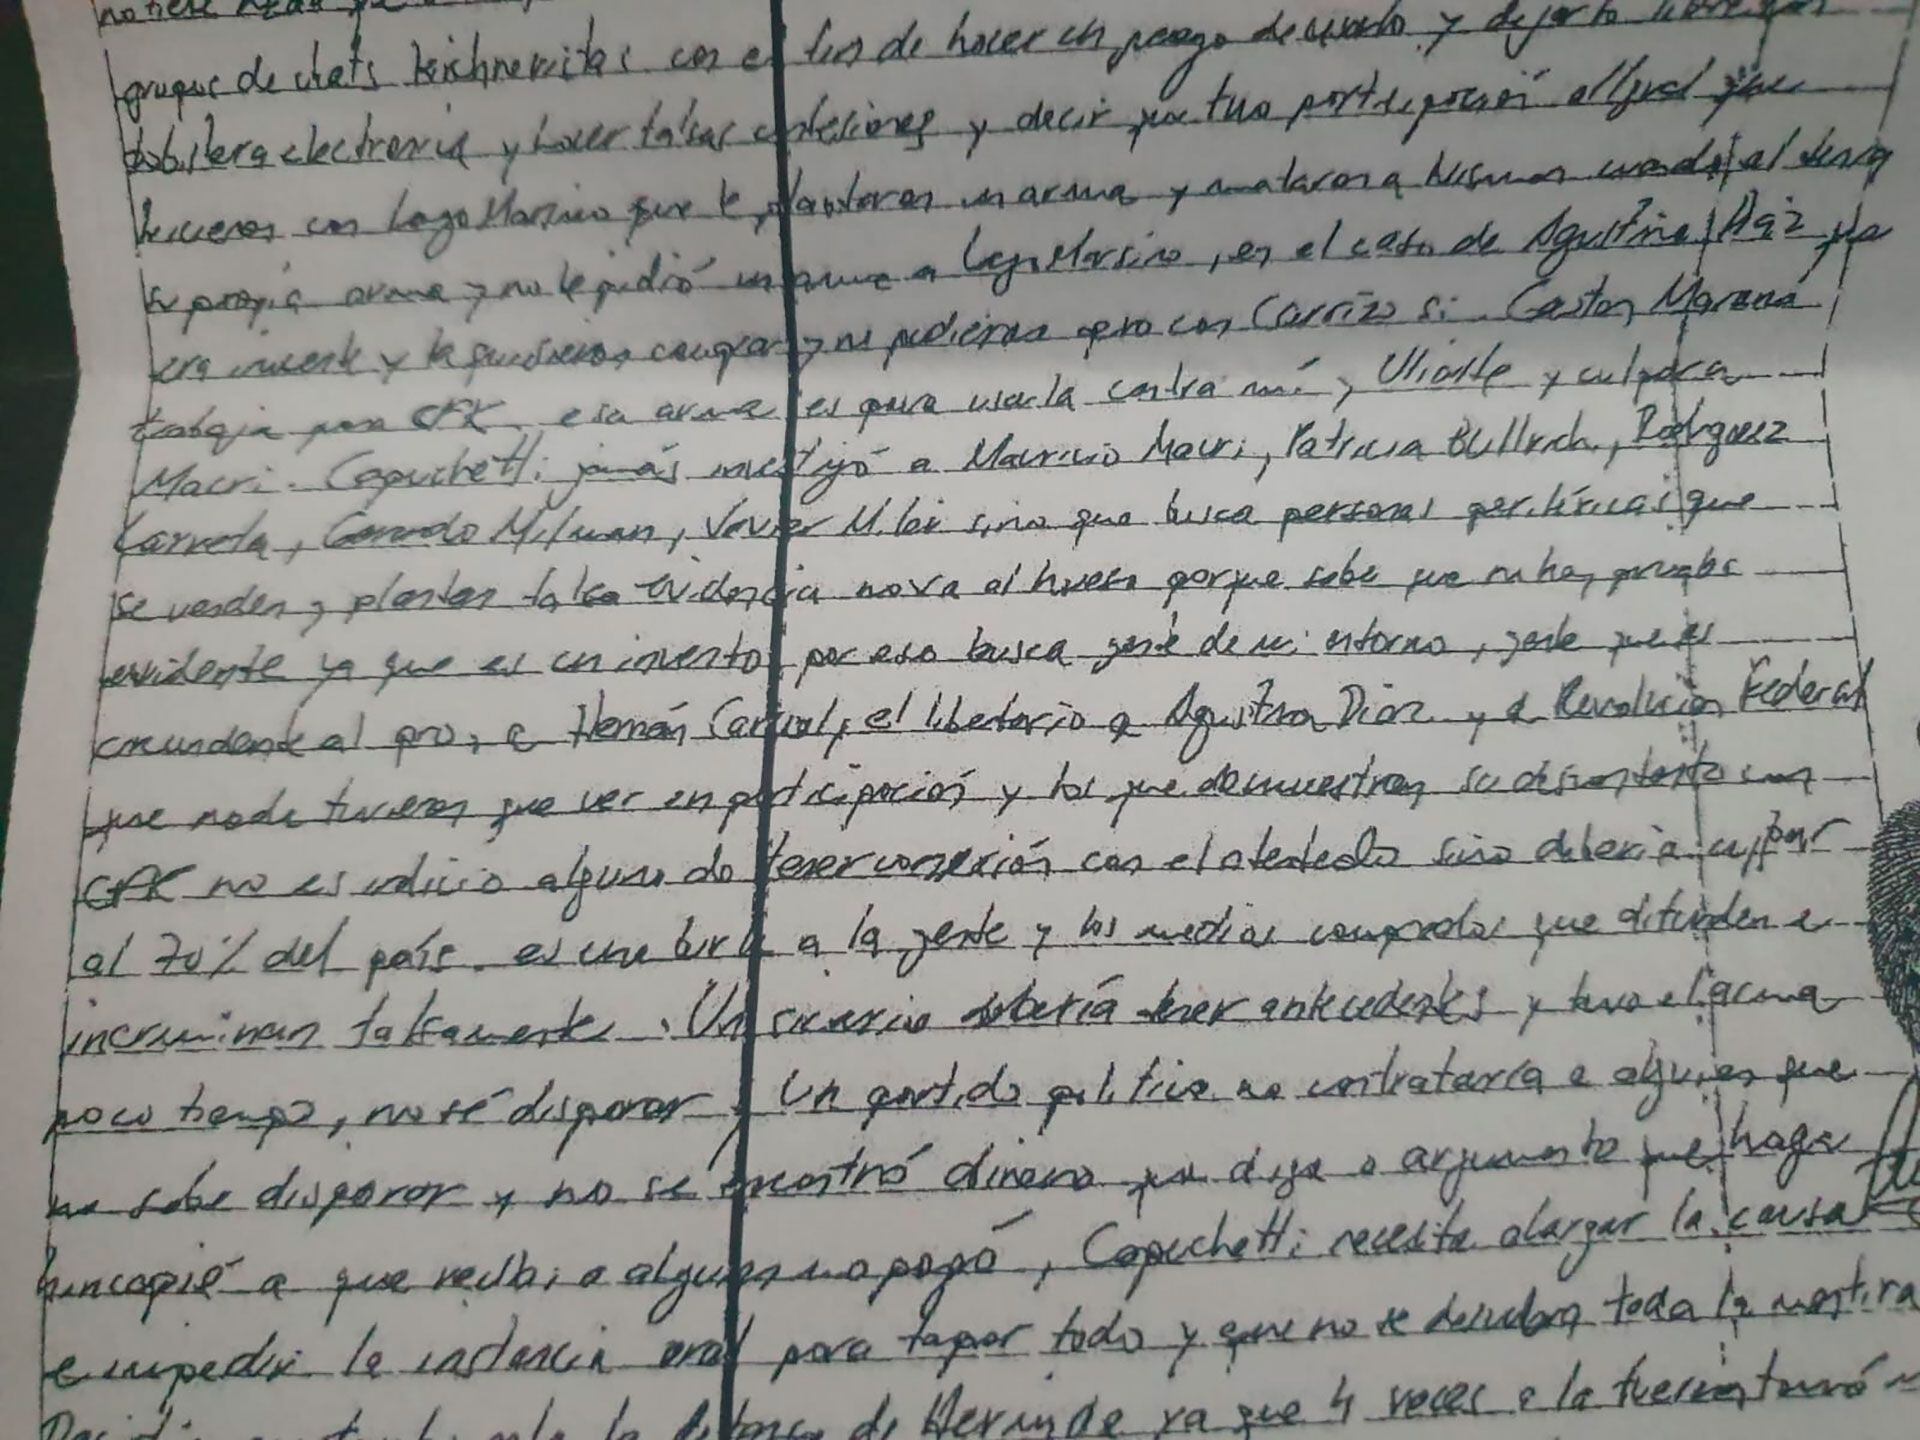 no tiene nada
grupos de chats kirchneristas con el fin de hacer un juego de cuarto y dejarlo libre con
tobillera electronica y hacer falsas confesiones y decir que tuvo participación al igual que
hicieron con Lago Marsino que le plantaron un arma y mataron a Nisman cuando el tenia
su propia arma y no le pidió un arma a Lago Marsino, en el caso de Agustina Diaz ella
era inocente y la quisieron comprar y no pudieron pero con Carrizo si. Gaston Marano
trabaja para CFK, esa arma es para usarla contra mí, Uliarte y culpar a
Macri. Capuchetti jamás investigó a Mauricio Macri, Patricia Bullrich, Rodriguez
Larreta, Gerardo Milman, Javier Milei sino que busca personas periféricas que
se venden y plantan falsa evidencia no va al hueso porque sabe que no hay pruebas
evidente ya que es un invento por eso busca gente de mi entorno, gente que es
al pro, a Hernán Carrol, el libertario a Agustina Diaz y a Revolución Federal
que nada tuvieron que ver en participación y los que demuestran su descontento con
CFK no es indicio alguno de tener conexión con el atentado sino debería culpar
al 70% del país. es una burla a la gente y los medios comprados que difunden e
incriminan falsamente. Un sicario debería tener antecedentes y tuve el arma
poco tiempo, no sé disparar, Un partido politico no contrataría a alguien que
no sabe disparar y no se encontró dinero que diga o argumento que haga
hincapié a que recibi o alguien me pagó, Capuchetti necesita alargar la causa
e impedir la instancia oral para tapar todo y que no se descubra toda la mentira
la de ya que 4 veces a la fuerza